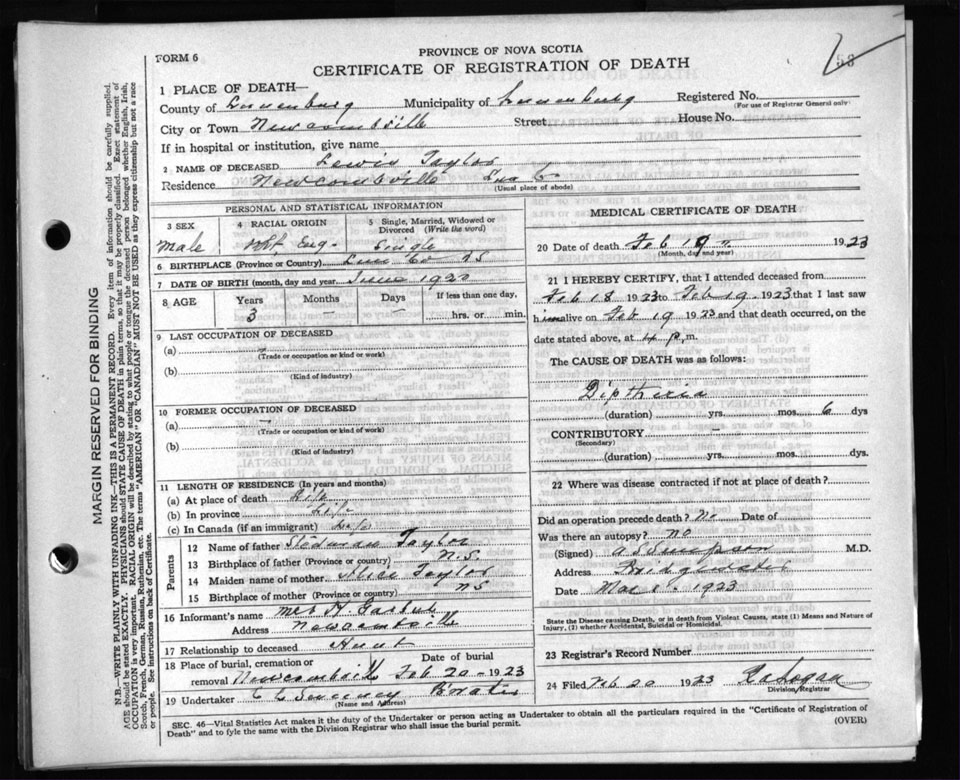 PROVINCE OF NOVA SCOTIA
FORM 6
CERTIFICATE OF REGISTRATION OF DEATH
53
1 PLACE OF DEATH—
County of Lunenburg Municipality of Lunenburg Registered No.
(For use of Registrar General only)
City or Town Newcombville Street House No.
If in hospital or institution, give name
2 NAME OF DECEASED Lewis Taylor
Residence Newcombville Lun Co
(Usual place of abode)
PERSONAL AND STATISTICAL INFORMATION
3 SEX Male
4 RACIAL ORIGIN Eng-
5 Single, Married, Widowed or Divorced (Write the word) Single
6 BIRTHPLACE (Province or Country) Lun Co NS
7 DATE OF BIRTH (month, day and year June 1920
8 AGE Years Months Days If less than one day,
3 — — hrs. or min.
9 LAST OCCUPATION OF DECEASED
(a)
(Trade or occupation or kind or work)
(b)
(Kind of industry)
10 FORMER OCCUPATION OF DECEASED
(a) —
(Trade or occupation or kind or work)
(b)
(Kind of industry)
11 LENGTH OF RESIDENCE (In years and months)
(a) At place of death Life
(b) In province Life
(c) In Canada (if an immigrant) Life
Parents
12 Name of father Stedman Taylor
13 Birthplace of father (Province or country) N.S.
14 Maiden name of mother Alice Taylor
15 Birthplace of mother (Province or country) NS
16 Informant's name Mrs H
Address Newcombville
17 Relationship to deceased Aunt
18 Place of burial, cremation or Date of burial
removal Newcombville Feb 20 - 1923
19 Undertaker Sweeney B'water
(Name and Address)
MEDICAL CERTIFICATE OF DEATH
20 Date of death Feb 19 1923
(Month, day and year)
21 I HEREBY CERTIFY, that I attended deceased from
Feb 18 1923 to Feb 19 1923 that I last saw
him alive on Feb 19 1923 and that death occurred, on the
date stated above, at 4 p. m.
The CAUSE OF DEATH was as follows:
Diptheria
(duration) yrs. mos. 6 dys
CONTRIBUTORY —
(Secondary)
(duration) yrs. mos. dys.
22 Where was disease contracted if not at place of death?
Did an operation precede death? No Date of
Was there an autopsy? no
(Signed) M.D.
Address Bridgewater
Date Mar 1. 1923
State the Disease causing Death, or in death from Violent Causes, state (1) Means and Nature of
Injury, (2) whether Accidental, Suicidal or Homicidal.
23 Registrar's Record Number
24 Filed Feb 20 1923 Logan
Division Registrar
SEC. 46—Vital Statistics Act makes it the duty of the Undertaker or person acting as Undertaker to obtain all the particulars required in the "Certificate of Registration of
Death" and to fyle the same with the Division Registrar who shall issue the burial permit.
(OVER)
MARGIN RESERVED FOR BINDING
N.B.—WRITE PLAINLY WITH UNFADING INK—THIS IS A PERMANENT RECORD. Every item of information should be carefully supplied.
AGE should be stated EXACTLY. PHYSICIANS should STATE CAUSE OF DEATH in plain terms, so that it may be properly classified. Exact statement of
OCCUPATION is very important. RACIAL ORIGIN will be described by stating to what people or tongue the deceased person belonged whether English, Irish,
Scotch, French, German, Russian, Ruthenian, etc. The terms "AMERICAN" OR "CANADIAN" MUST NOT BE USED as they express citizenship but not a race
or people. See instructions on back of Certificate.